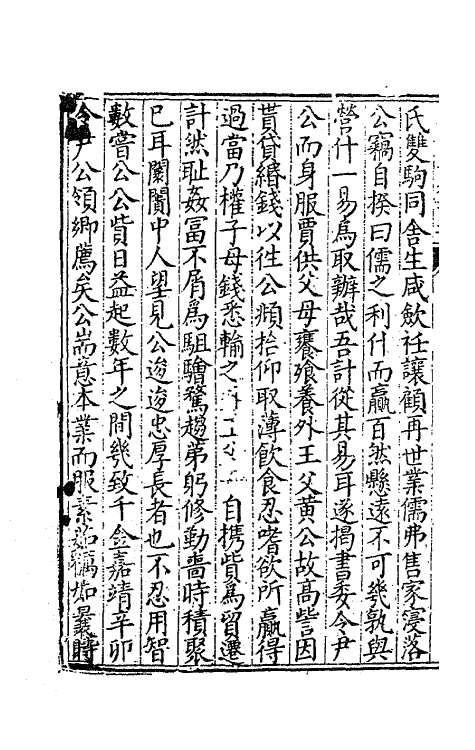 氏雙駒同舍生咸歛衽讓顧再世業儒弗售家寖落
公竊自揆曰儒之利什而贏百然懸遠不可幾孰與
營什一易爲取辦哉吾計從其易耳遂揭書委令尹
公而身服賈供父母饔飱養外王父黄公故高訾因
貰貸緡錢以徃公頫拾仰取薄飲食忍嗜欲所贏得
過當乃權子母錢悉輸之 自携貲爲貿遷
計然耻姦冨不屑爲駔驓騖趨苐躬修勤嗇時積聚
已耳闤闠中人望見公逡逡忠厚長者也不忍用智
數嘗公公貲日益起數年之間㡬致千金嘉靖辛卯
令尹公領鄉薦矣公耑意本業而服素茹糲如曩時